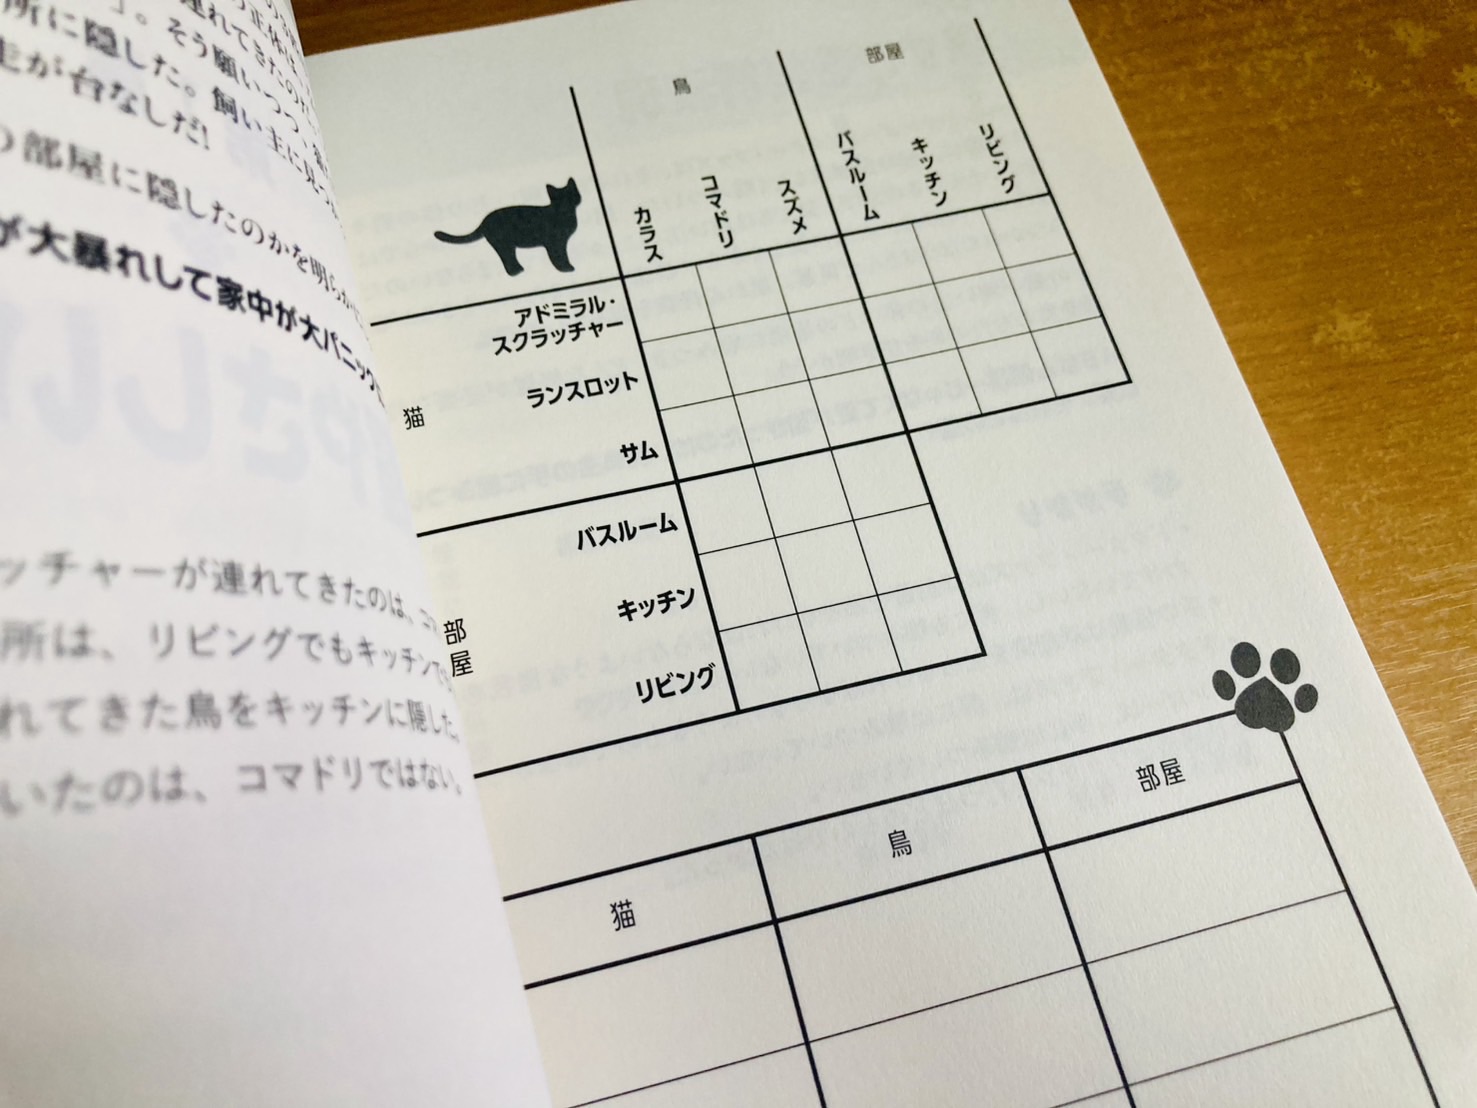 連れてきたの
所に隠した。飼い主に見つ
。そう願いつつ、
走が台なしだ!
の部屋に隠したのかを明らか
が大暴れして家中が大パニック
ッチャーが連れてきたのは、コ
所は、リビングでもキッチンで
れてきた鳥をキッチンに隠した。
いたのは、コマドリではない。
鳥
部屋
カラス
コマドリ
スズメ
バスルーム
キッチン
リビング
猫
アドミラル・
スクラッチャー
ランスロット
サム
部屋
バスルーム
キッチン
リビング
猫
鳥
部屋